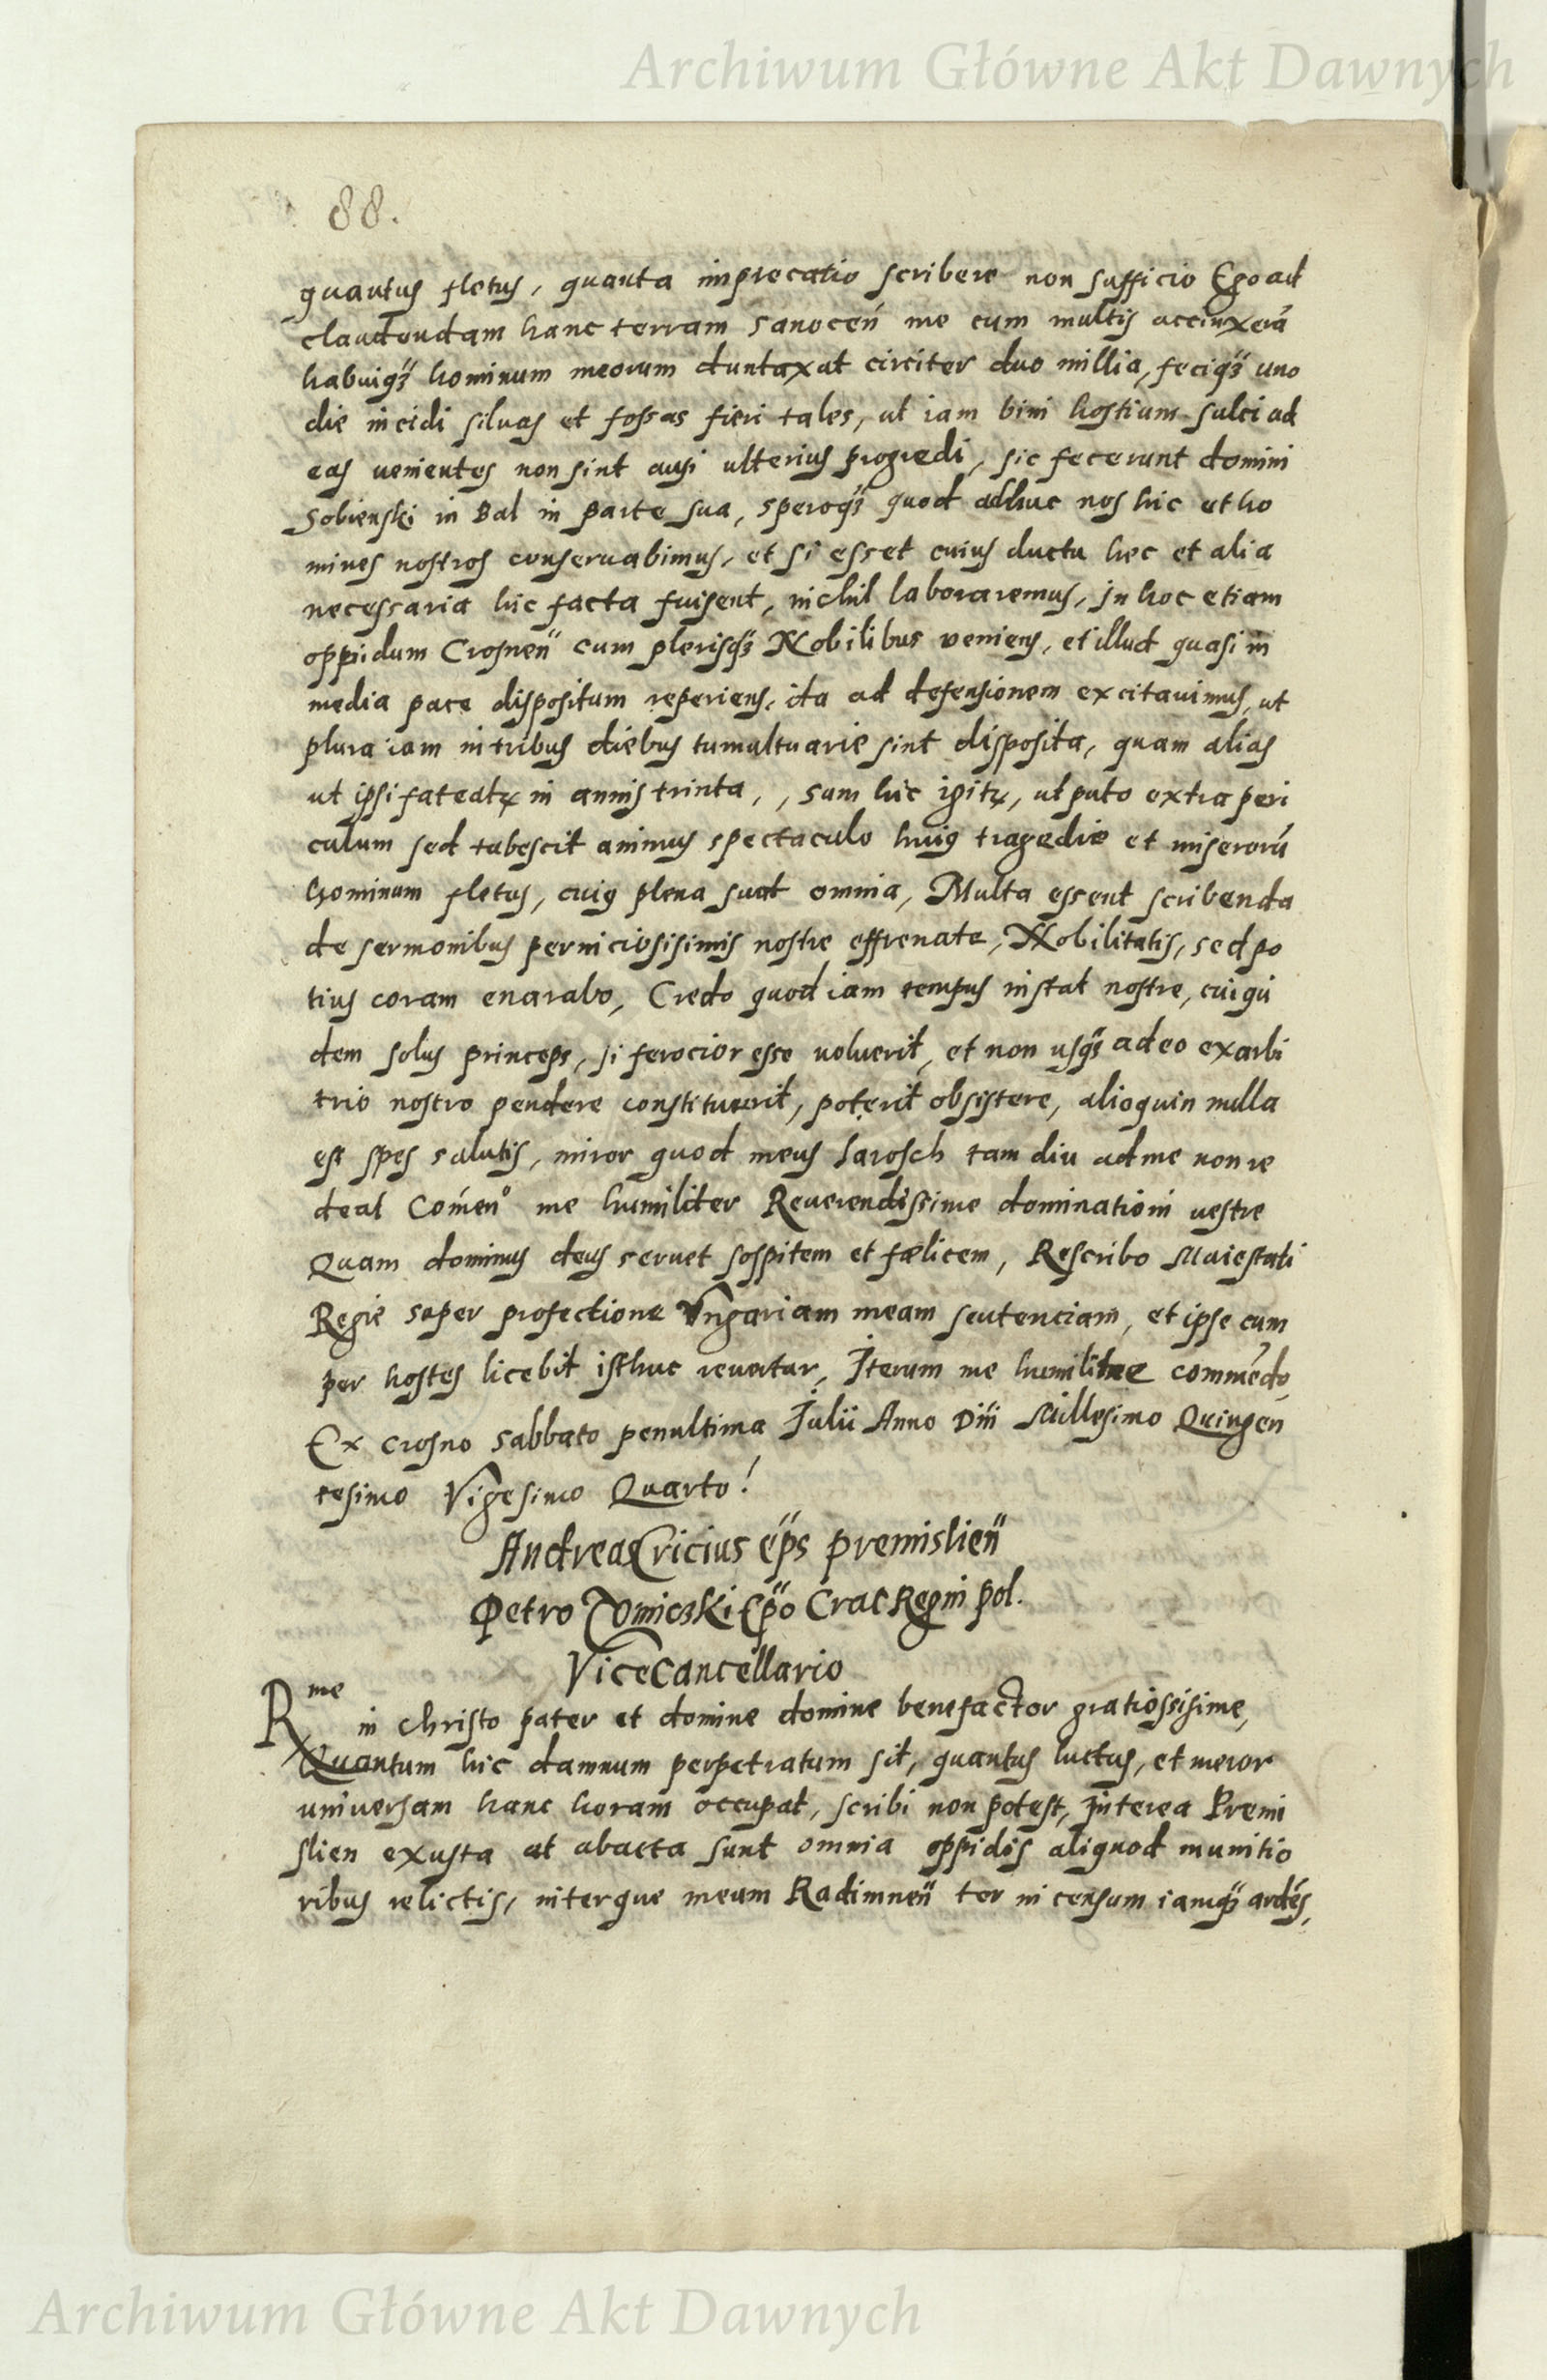 Archiwum Główne Akt Dawnych
88.
quantus fletus, quanta imprecatio scribere non sufficio Ego ad
claudendam hanc terram sanoceñ me cum multis accinxerā
habuiqꝫ hominum meorum duntaxat circiter duo millia, feciqꝫ uno
die incidi siluas et fossas fieri tales, ut iam bini hostium sulci ad
eas uenientes non sint ausi ulterius progredi, sic fecerunt domini
Sobienski in Bal in parte sua, speroqꝫ quod adhuc nos hic et ho
mines nostros conseruabimus, et si esset cuius ductu hec et alia
necessaria hic facta fuisent, nichil laboraremus, in hoc etiam
oppidum Crosneñ cum plerisqꝫ Nobilibus veniens, et illud quasi in
media pace dispositum reperiens, ita ad defensionem excitauimus, ut
plura iam in tribus diebus tumultuarie sint disposita, quam alias
ut ipsi fateatꝛ in annis trinta, , sum hic igitꝛ, ut puto extra peri
culum sed tabescit animus spectaculo huiꝰ tragedie et miserorū
hominum fletus, cuiꝰ plena sunt omnia, Multa essent scribenda
de sermonibus perniciosisimis nostre effrenate, Nobilitatis, sed po
tius coram enarabo, Credo quod iam tempus instat nostre, cui qui
dem solus princeps, si ferocior esse uoluerit, et non usqꝫ adeo ex arbi
trio nostro pendere constituerit, poterit obsistere, alioquin nulla
est spes salutis, miror quod meus Iarosch tam diu ad me non re
deat Coḿen° me humiliter Reuerendissime dominationi uestre
Quam dominus deus seruet sospitem et fælicem, Rescribo Maiestati
Regie super profectione Vngariam meam sentenciam, et ipse cum
per hostes licebit isthuc reuertar, Iterum me humiliter commēdo,
Ex crosno sabbato penultima Iulii Anno Dñi Millesimo Quingen
tesimo Vigesimo Quarto!
Andreas Cricius ep̃s premislieñ
Petro Tomiczki Ep̃o Crac Regni pol.
Vicecancellario
Rme in Christo pater et domine domine benefactor gratiossisime,
Quantum hic damnum perpetratum sit, quantus luctus, et meror
universam hanc horam occupat, scribi non potest, Interea Premi
slien exusta at abacta sunt omnia oppidis aliquod munitio
ribus relictis, interque meum Radimneñ ter incensum iamqꝫ ardēs,
Archiwum Główne Akt Dawnych